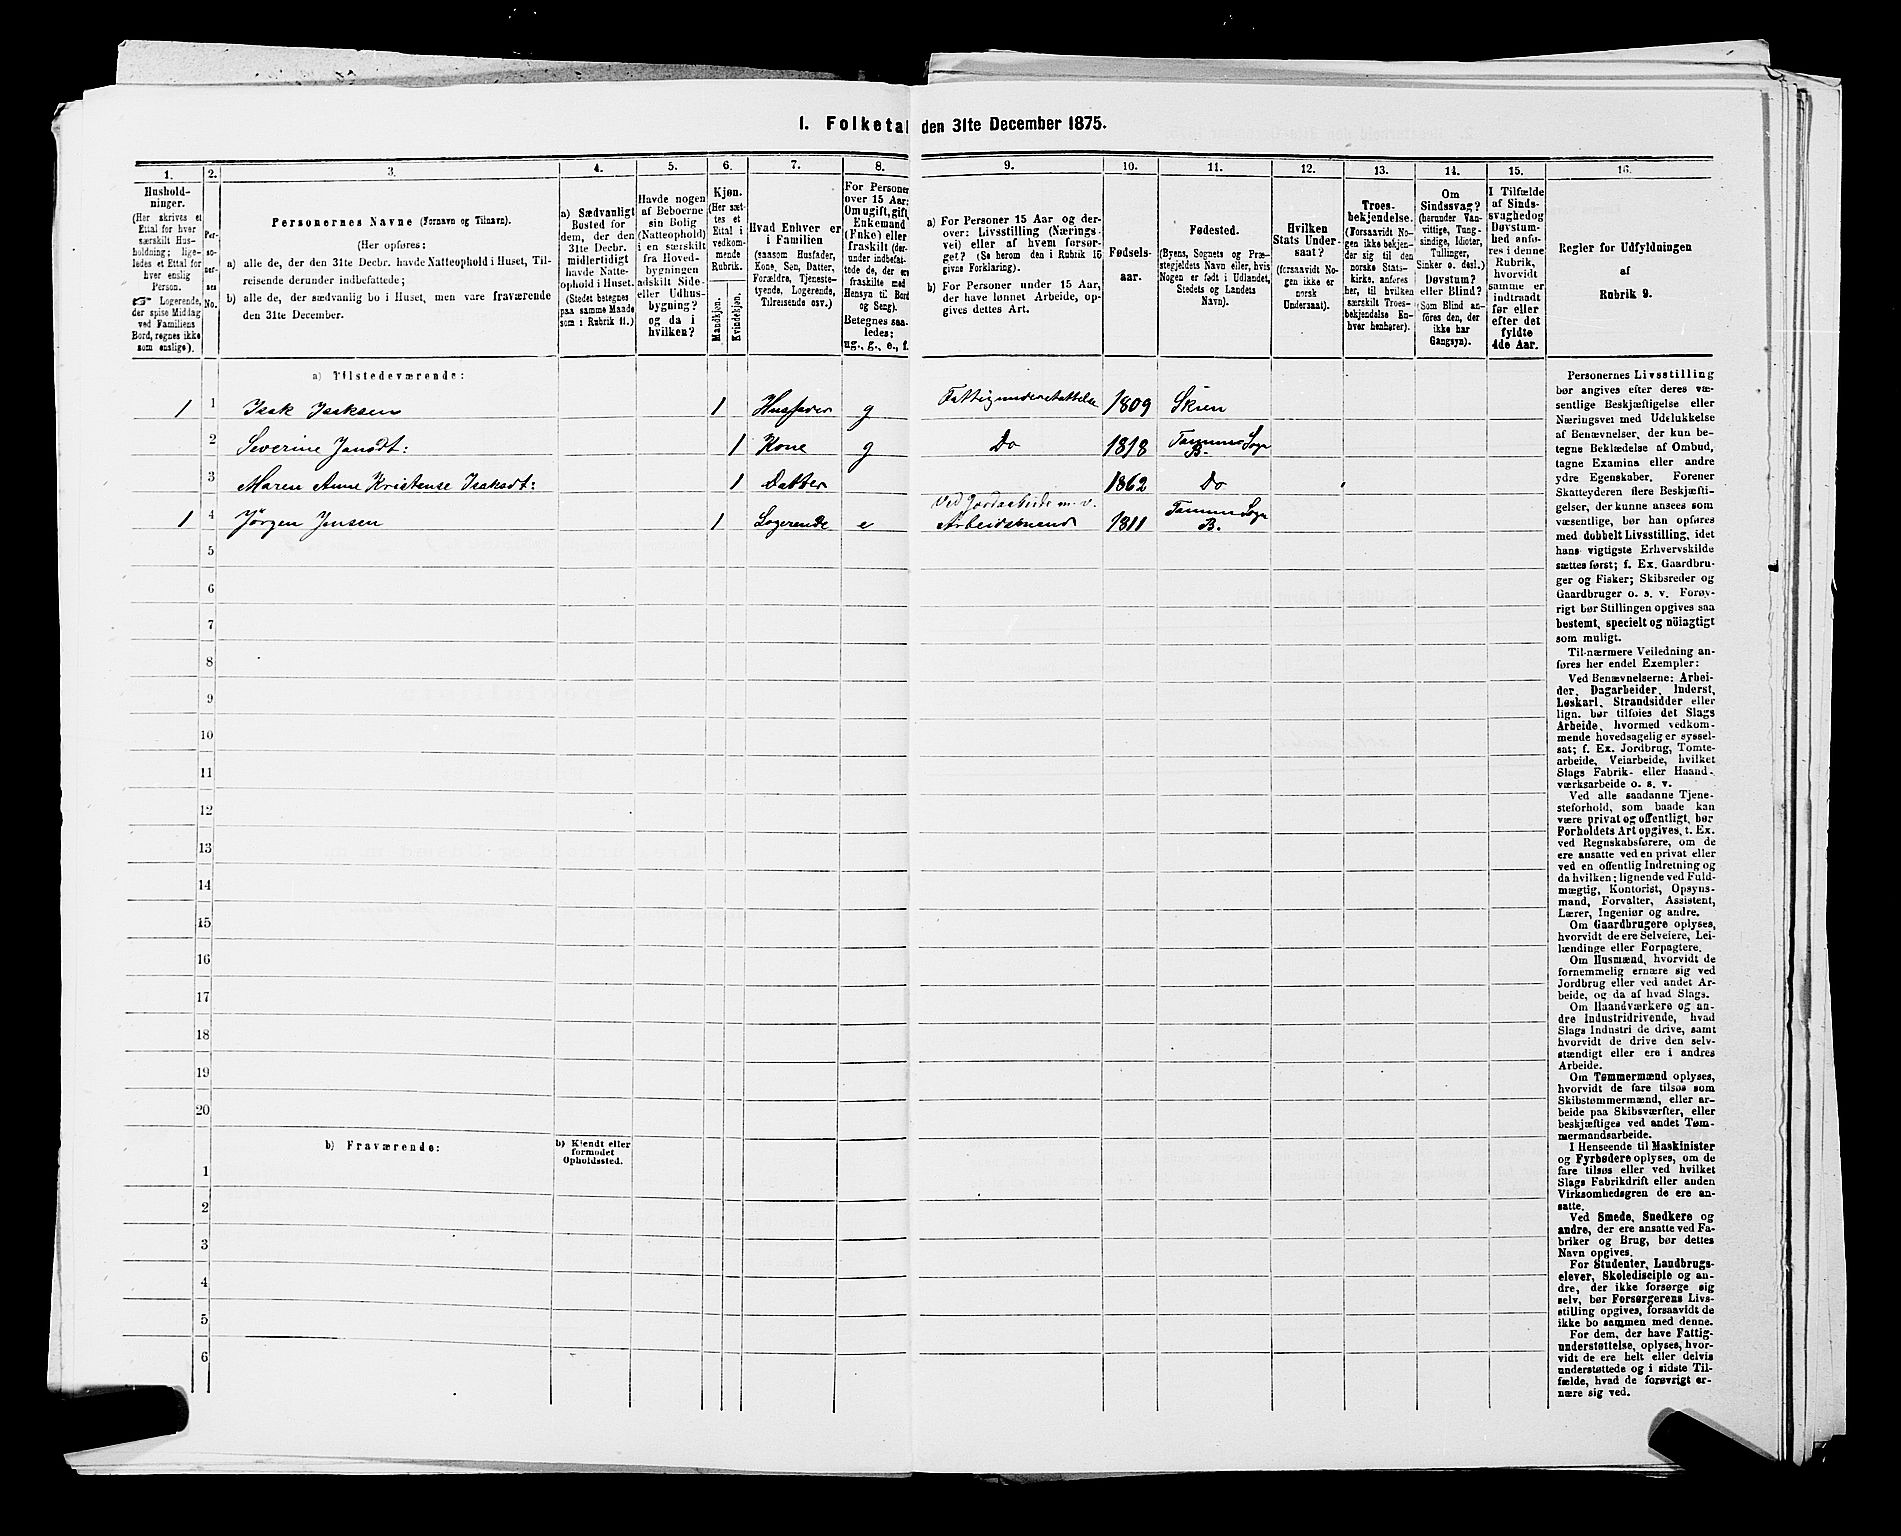 I. Folketal den 31te December 1875.
1.
Hushold-
ninger.
(Her skrives et
Ettal for hver
særskilt Hus-
holdning; lige-
ledes et Ettal for
hver enslig
Person.
Logerende,
der spise Middag
ved Familiens
Bord, regnes ikke
som enslige).
2.
Per-
so-
ner-
nes
No.
3.
Personernes Navne (Fornavn og Tilnavn).
(Her opføres:
a) alle de, der den 31te Decbr. havde Natteophold i Huset, Til-
reisende derunder indbefattede;
b) alle de, der sædvanlig bo i Huset, men vare fraværende
den 31te December.
4.
a) Sædvanligt
Bosted for
dem, der den
31te Decbr.
midlertidigt
havde Natte-
ophold i Huset.
(Stedet betegnes
paa samme Maade
som i Rubrik 11.)
5.
Havde nogen
af Beboerne
sin Bolig
(Natteophold)
i en særskilt
fra Hoved-
bygningen
adskilt Side-
eller Udhus-
bygning?
og da i
hvilken?
6.
Kjøn.
(Her sæt-
tes et
Ettal i
vedkom-
mende
Rubrik.
Mandkjøn.
Kvindekjøn.
7.
Hvad Enhver er
i Familien
(saasom Husfader,
Kone, Søn, Datter,
Forældre, Tjeneste-
tyende, Logerende,
Tilreisende osv.)
8.
For Personer
over 15 Aar:
Om ugift, gift,
Enkemand
(Enke) eller
fraskilt (der-
under indbefat-
tede de, der ere
fraskilte med
Hensyn til Bord
og Seng).
Betegnes saa-
ledes:
ug., g., e., f.
9.
a) For Personer 15 Aar og der-
over: Livsstilling (Nærings-
vei) eller af hvem forsør-
get? (Se herom den i Rubrik 16
givne Forklaring).
b) For Personer under 15 Aar,
der have lønnet Arbeide, op-
gives dettes Art.
10.
Fødsels-
aar.
11.
Fødested.
(Byens, Sognets og Præ-
stegjeldets Navn eller, hvis
Nogen er født i Udlandet,
Stedets og Landets
Navn).
12.
Hvilken
Stats Under-
saat?
(forsaavidt No-
gen ikke er
norsk
Undersaat).
13.
Troes-
bekjendelse.
(Forsaavidt No-
gen ikke bekjen-
der sig til den
norske Stats-
kirke, anføres
her, til hvilken
særskilt Troes-
bekjendelse En-
hver henhører).
14.
Om
Sindssvag?
(herunder Van-
vittige, Tung-
sindige, Idioter,
Tullinger,
Sinker o. desl.)
Døvstum?
eller Blind?
(Som Blind an-
føres den, der
ikke har
Gangsyn).
15.
I Tilfælde
af Sinds-
svaghed og
Døvstum-
hed anfø-
res i denne
Rubrik,
hvorvidt
samme er
indtraadt
før eller
efter det
fyldte
4de Aar.
16.
Regler for Udfyldningen
af
Rubrik 9.
a) Tilstedeværende:
1 1 Isak Isaksen 1 Husfader g Fattigunderstøttelse 1809 Skien
2 Severine Jansdt: 1 Kone g Do 1818 Tanum Sogn
B.
3 Maren Anne Kristense Isaksdt: 1 Datter 1862 Do
Ved Jordarbeide m. v.
1 4 Jörgen Jensen 1 Logerende e Arbeidsmand 1811 Tanum Sogn
B.
5
6
7
8
9
10
11
12
13
14
15
16
17
18
19
20
b) Fraværende:
b) Kjendt eller
formodet
Opholdssted.
1
2
3
4
5
6
Personernes Livsstilling
bør angives efter deres væ-
sentlige Beskjæftigelse eller
Næringsvei med Udelukkelse
af Benævnelser, der kun be-
tegne Beklædelse af Ombud,
tagne Examina eller andre
ydre Egenskaber. Forener
Skatteyderen flere Beskjæfti-
gelser, der kunne ansees som
væsentlige, bør han opføres
med dobbelt Livsstilling, idet
hans vigtigste Erhvervskilde
sættes først; f. Ex. Gaardbru-
ger og Fisker; Skibsreder og
Gaardbruger o. s. v. Forøv-
rigt bør Stillingen opgives saa
bestemt, specielt og nöiagtigt
som muligt.
Til nærmere Veiledning an-
føres her endel Exempler:
Ved Benævnelserne: Arbei-
der, Dagarbeider, Inderst,
Løskarl, Strandsidder eller
lign. bør tilføies det Slags
Arbeide, hvormed vedkom-
mende hovedsagelig er syssel-
sat; f. Ex. Jordbrug, Tomte-
arbeide, Veiarbeide, hvilket
Slags Fabrik- eller Haand-
værksarbeide o. s. v.
Ved alle saadanne Tjene-
steforhold, som baade kan
være privat og offentligt, bør
Forholdets Art opgives, t. Ex.
ved Regnskabsførere, om de
ere ansatte ved en privat eller
ved en offentlig Indretning og
da hvilken; lignende ved Fuld-
mægtig, Kontorist, Opsyns-
mand, Forvalter, Assistent,
Lærer, Ingeniør og andre.
Om Gaardbrugere oplyses,
hvorvidt de ere Selveiere, Lei-
lændinge eller Forpagtere.
Om Husmænd, hvorvidt de
fornemmelig ernære sig ved
Jordbrug eller ved andet Ar-
beide, og da af hvad Slags.
Om Haandværkere og an-
dre Industridrivende, hvad
Slags Industri de drive, samt
hvorvidt de drive den selv-
stændigt eller ere i andres
Arbeide.
Om Tømmermænd oplyses,
hvorvidt de fare tilsøs som
Skibstømmermænd, eller ar-
beide paa Skibsværfter, eller
beskjæftiges ved andet Tøm-
mermandsarbeide.
I Henseende til Maskinister
og Fyrbødere oplyses, om de
fare tilsøs eller ved hvilket
Slags Fabrikdrift eller anden
Virksomhedsgren de ere an-
satte.
Ved Smede, Snedkere og
andre, der ere ansatte ved Fa-
briker og Brug, bør dettes
Navn opgives.
For Studenter, Landbrugs-
elever, Skoledisciple og an-
dre, der ikke forsørge sig
selv, bør Forsørgerens Livs-
stilling opgives, forsaavidt de
ikke bo sammen med denne.
For dem, der have Fattig-
understøttelse, oplyses, hvor-
vidt de ere helt eller delvis
understøttede og i sidste Til-
fælde, hvad de forøvrigt er-
nære sig ved.